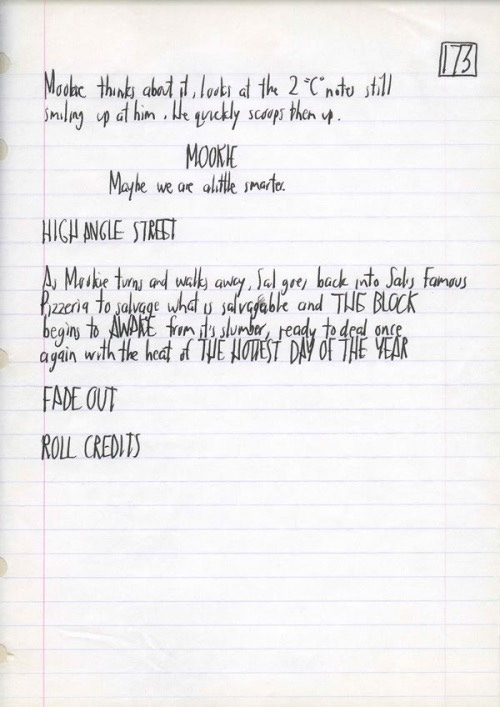 173
Mookie thinks about it, looks at the 2 "C" notes still
smiling up at him. He quickly scoops them up.
MOOKIE
Maybe we are alittle smarter.
HIGH ANGLE STREET
As Mookie turns and walks away, Sal goes back into Sal's Famous
Pizzeria to salvage what is salvagable and THE BLOCK
begins to AWAKE from it's slumber, ready to deal once
again with the heat of THE HOTTEST DAY OF THE YEAR
FADE OUT
ROLL CREDITS